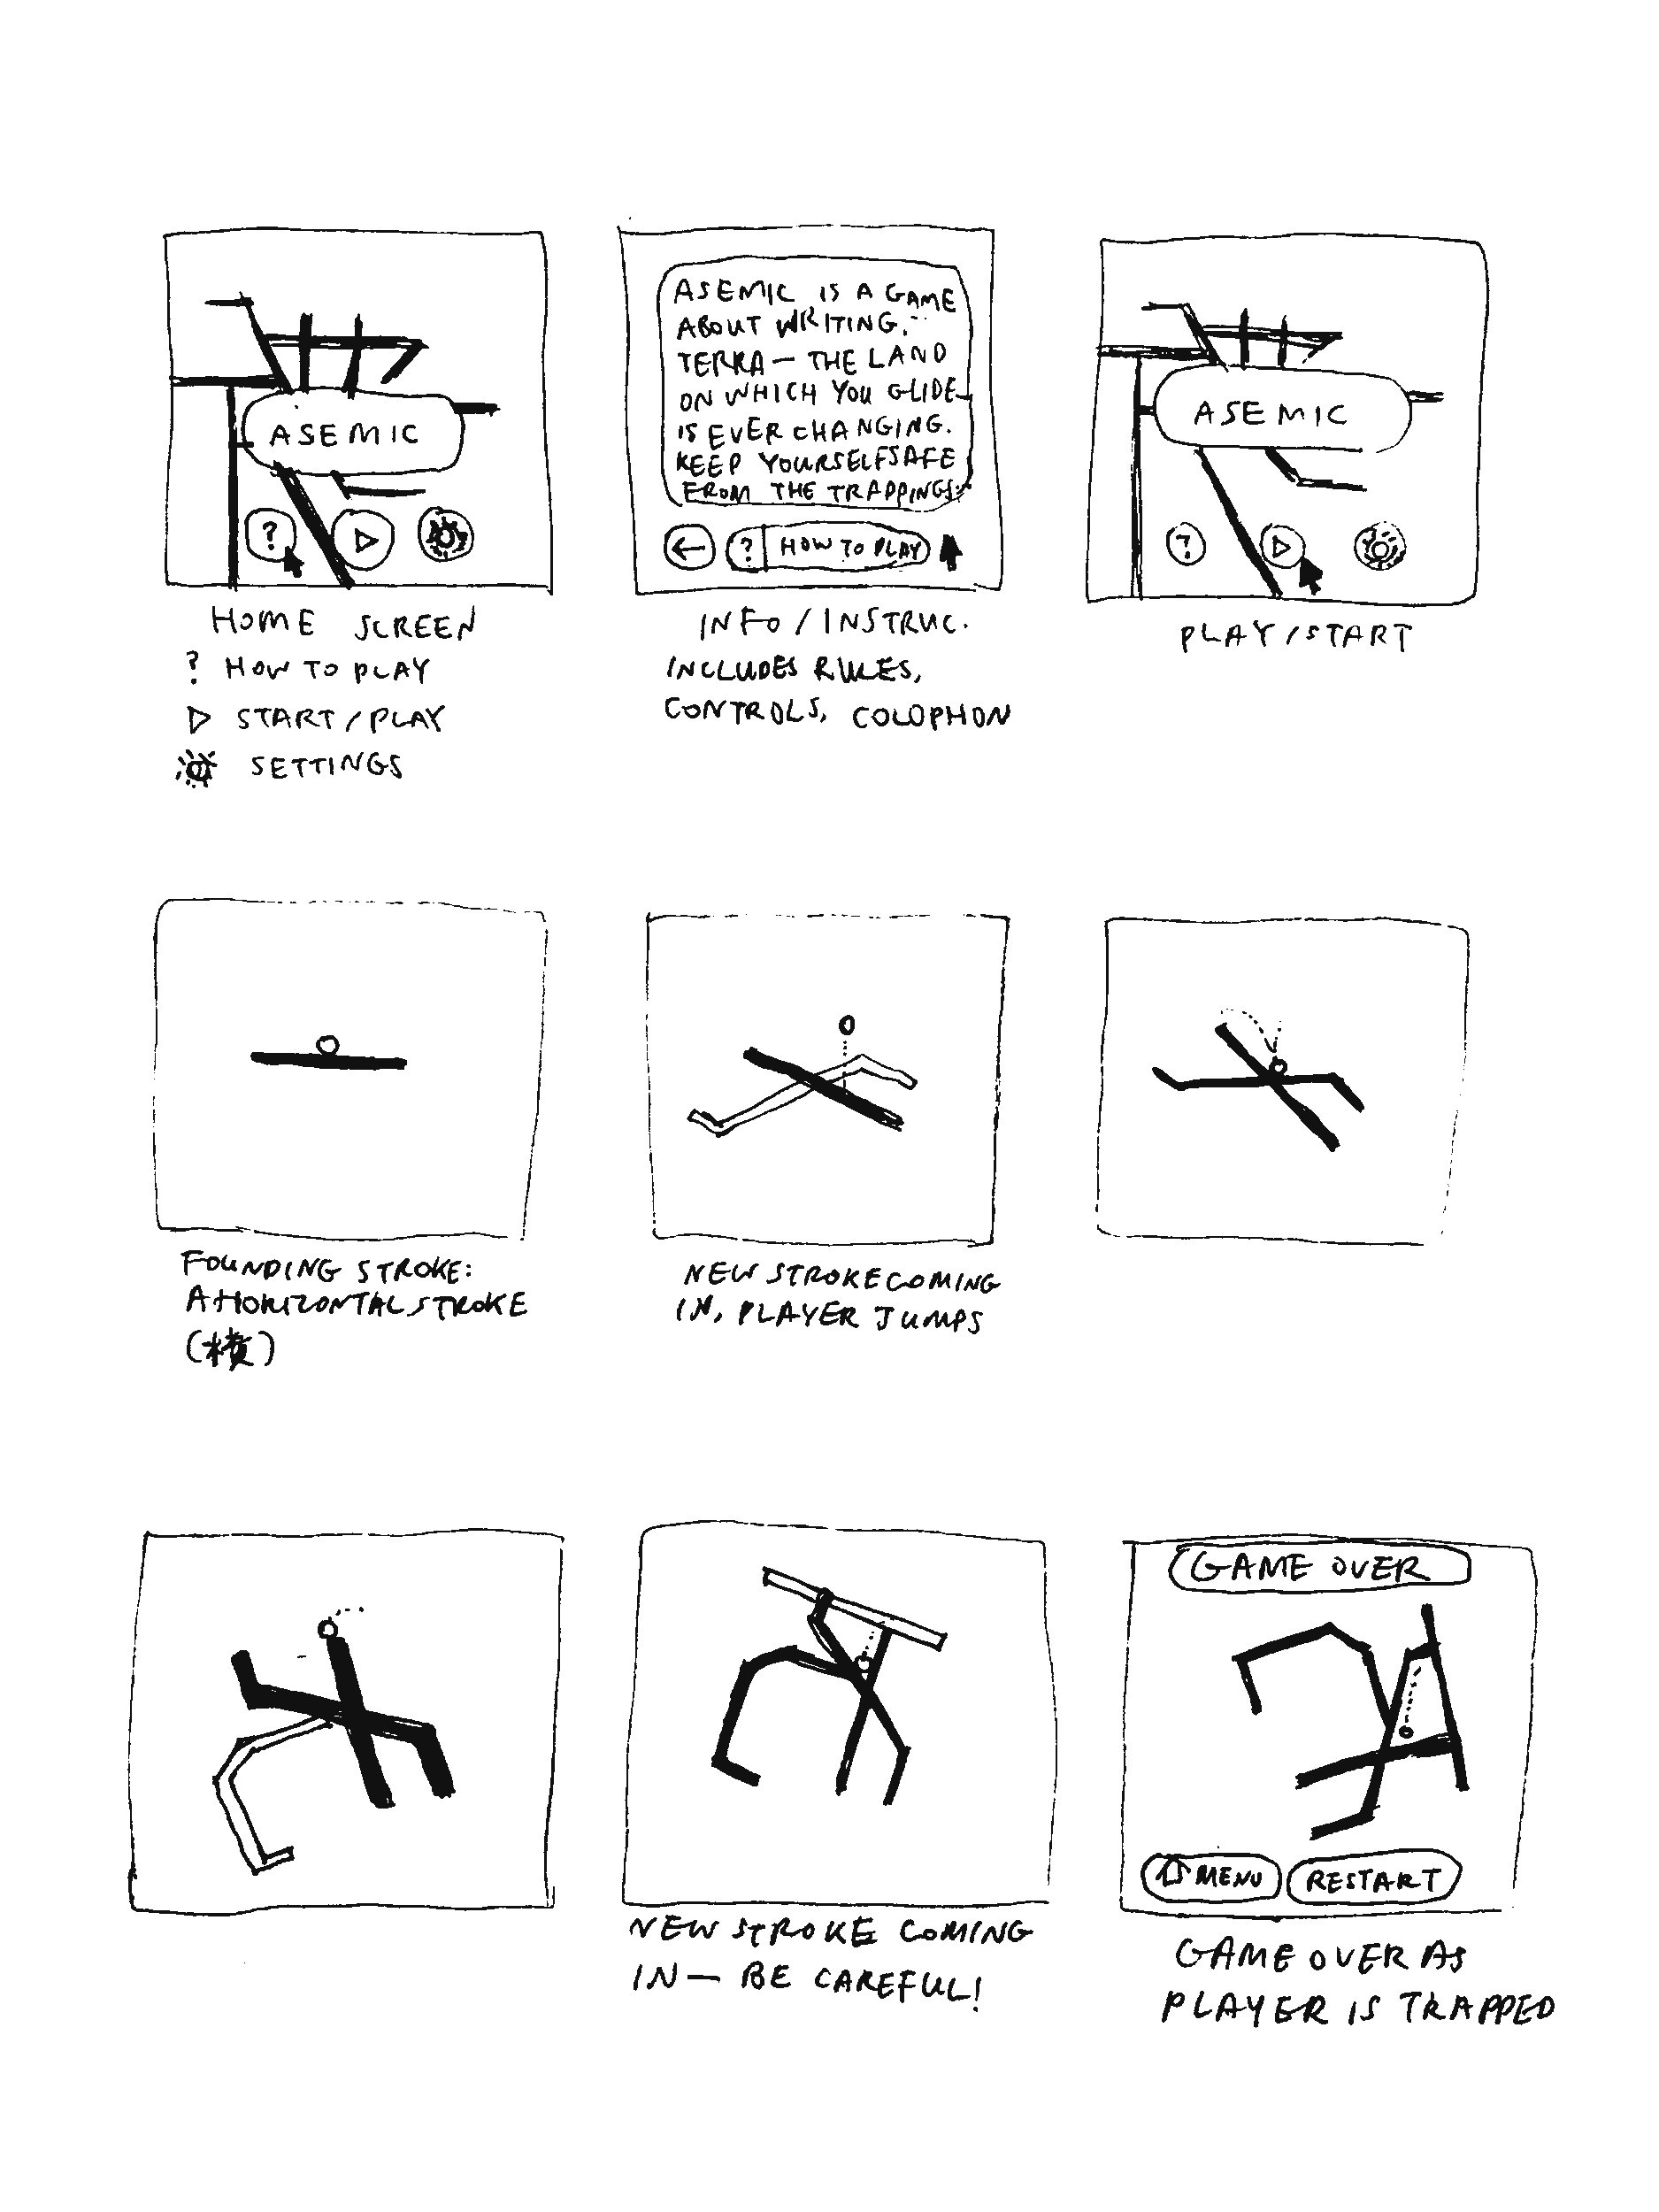 ASEMIC
?
HOME SCREEN
? HOW TO PLAY
▷ START/PLAY
SETTINGS
ASEMIC IS A GAME
ABOUT WRITING.
TERRA — THE LAND
ON WHICH YOU GLIDE —
IS EVER CHANGING.
KEEP YOURSELF SAFE
FROM THE TRAPPINGS.
← ? HOW TO PLAY
INFO/INSTRUC.
INCLUDES RULES,
CONTROLS, COLOPHON
ASEMIC
?
PLAY/START
FOUNDING STROKE:
A HORIZONTAL STROKE
(横)
NEW STROKE COMING
IN, PLAYER JUMPS
NEW STROKE COMING
IN — BE CAREFUL!
GAME OVER
MENU
RESTART
GAME OVER AS
PLAYER IS TRAPPED